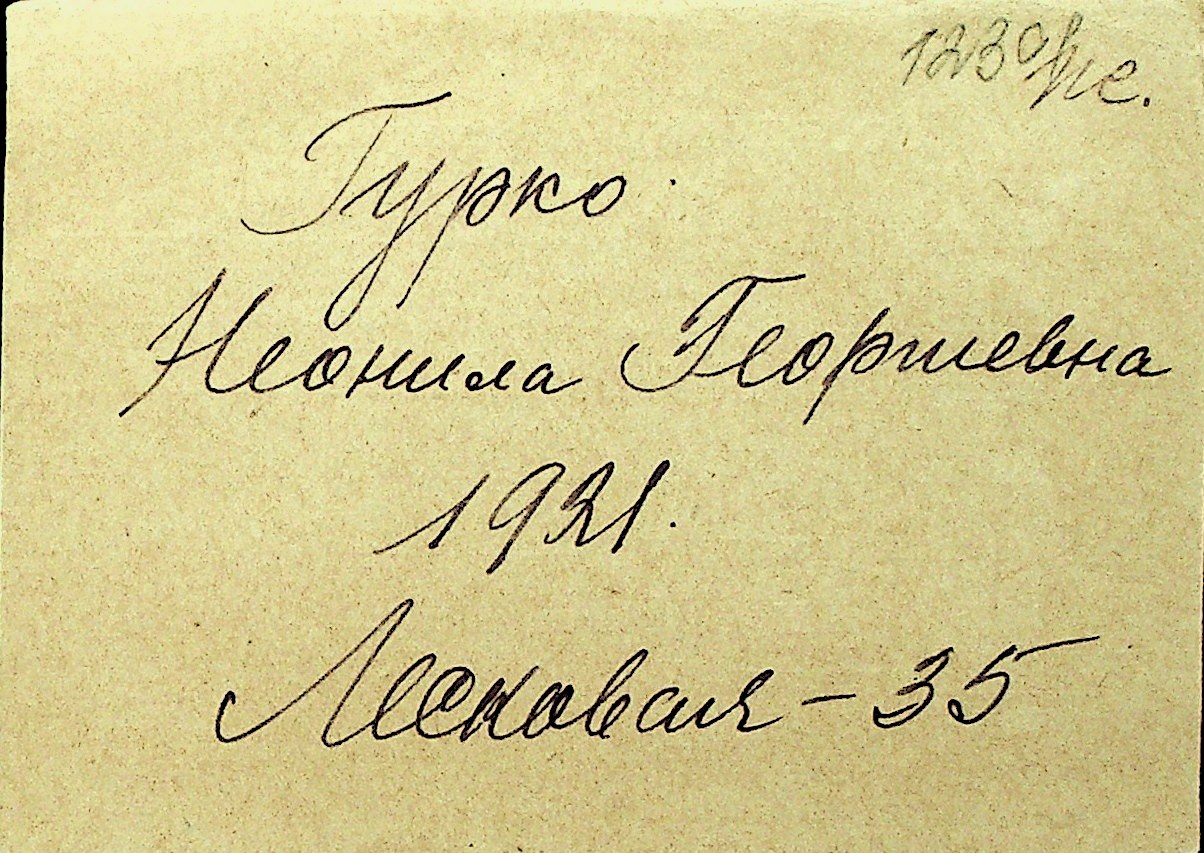 Гурко
Неонила Георгиевна
1921.
Лесковая - 35